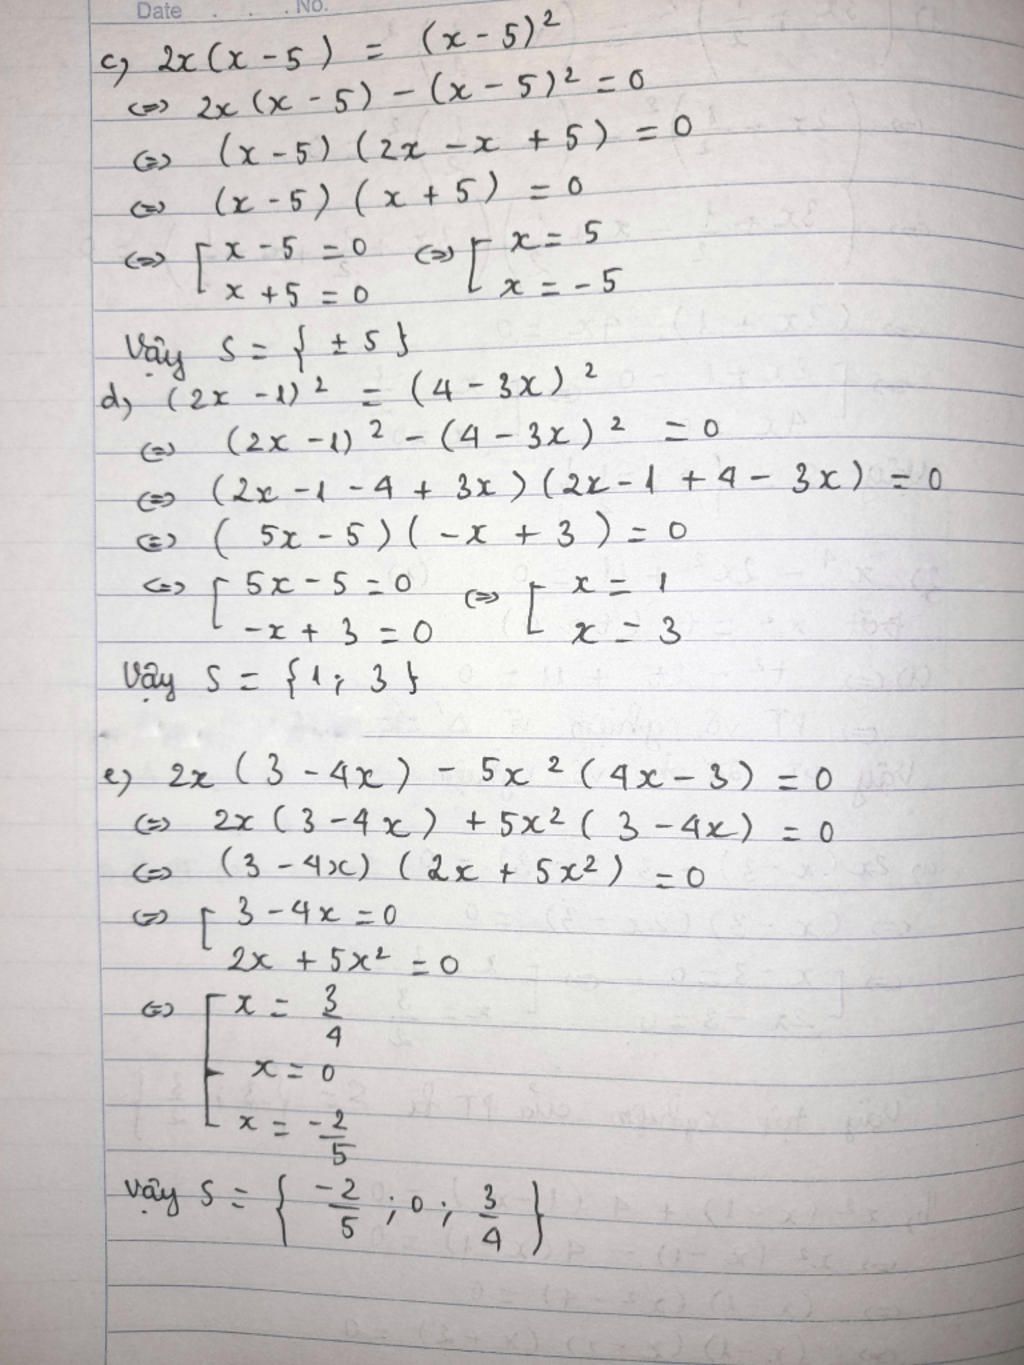 Date . . . No.
c) 2x(x - 5) = (x - 5)²
<=> 2x(x - 5) - (x - 5)² = 0
<=> (x - 5)(2x - x + 5) = 0
<=> (x - 5)(x + 5) = 0
<=> [ x - 5 = 0 <=> [ x = 5
x + 5 = 0 x = -5
Vậy S = { ± 5 }
d) (2x - 1)² = (4 - 3x)²
<=> (2x - 1)² - (4 - 3x)² = 0
<=> (2x - 1 - 4 + 3x)(2x - 1 + 4 - 3x) = 0
<=> (5x - 5)(-x + 3) = 0
<=> [ 5x - 5 = 0 <=> [ x = 1
-x + 3 = 0 x = 3
Vậy S = {1; 3}
e) 2x(3 - 4x) - 5x²(4x - 3) = 0
<=> 2x(3 - 4x) + 5x²(3 - 4x) = 0
<=> (3 - 4x)(2x + 5x²) = 0
<=> [ 3 - 4x = 0
2x + 5x² = 0
<=> [ x = 3/4
x = 0
x = -2/5
Vậy S = { -2/5 ; 0 ; 3/4 }